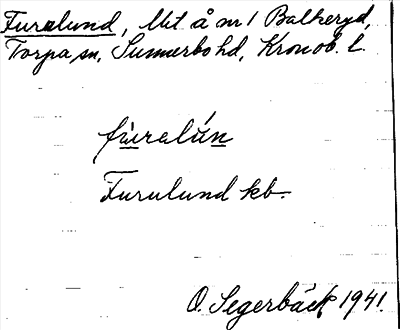 Furulund, Utt. å nr 1 Balheryd,
Torpa sn, Sunnerbo hd, Kronob. l.
fùralún
Furulund kb.
O. Segerbäck 1941.